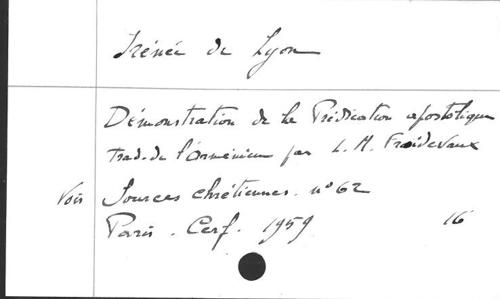 Irénée de Lyon
Démonstration de la Prédication apostolique
trad. de l'Arménien par L. M. Froidevaux
Voir Sources chrétiennes. n° 62
Paris. Cerf. 1959 16